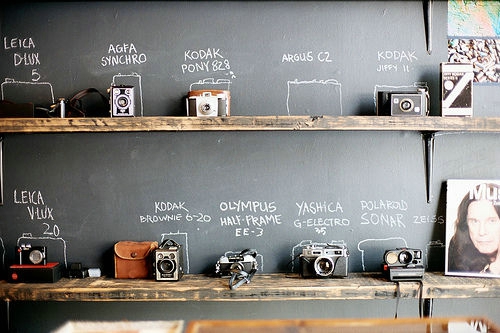 LEICA
D-LUX
5
AGFA
SYNCHRO
KODAK
PONY 828
ARGUS C2
KODAK
JIFFY II
LEICA
V-LUX
20
KODAK
BROWNIE 6-20
OLYMPUS
HALF-FRAME
EE-3
YASHICA
G-ELECTRO
35
POLAROID
SONAR
ZEISS